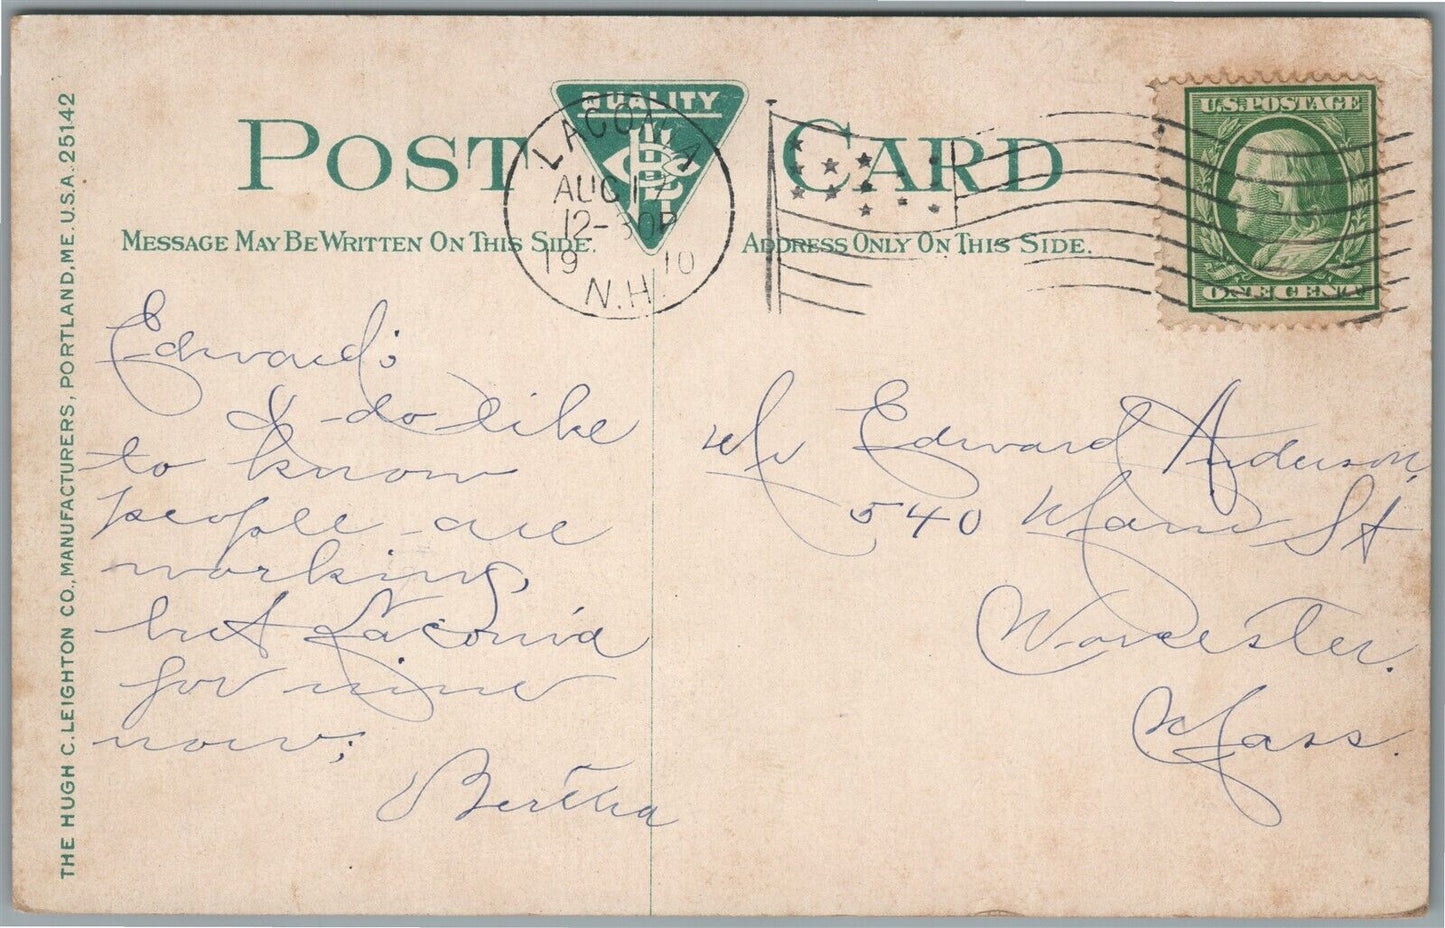 POST CARD
QUALITY
MESSAGE MAY BE WRITTEN ON THIS SIDE.
ADDRESS ONLY ON THIS SIDE.
LACONIA
AUG 17
12-30P
19 10
N.H.
U.S. POSTAGE
ONE CENT
THE HUGH C. LEIGHTON CO., MANUFACTURERS, PORTLAND, ME. U.S.A. 25142
Edward:
I do like
to know
people are
working,
but Laconia
for mine
now;
Bertha
Mr Edward Anderson,
540 Main St
Worcester.
Mass.